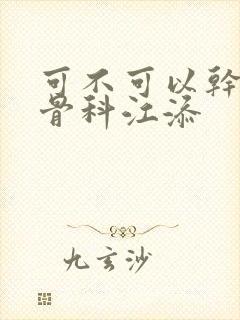 可不可以幹
骨科江添
九玄沙